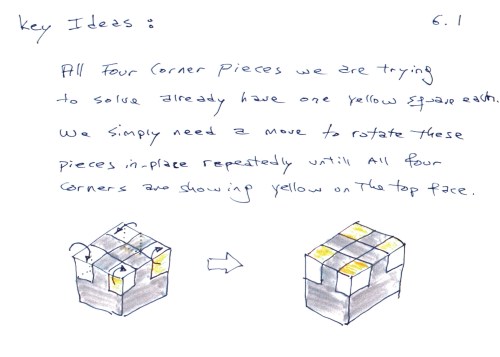 Key Ideas :
6.1
All Four Corner Pieces we are trying
to solve already have one yellow square each.
We simply need a move to rotate these
pieces in-place repeatedly untill All four
corners are showing yellow on The top face.